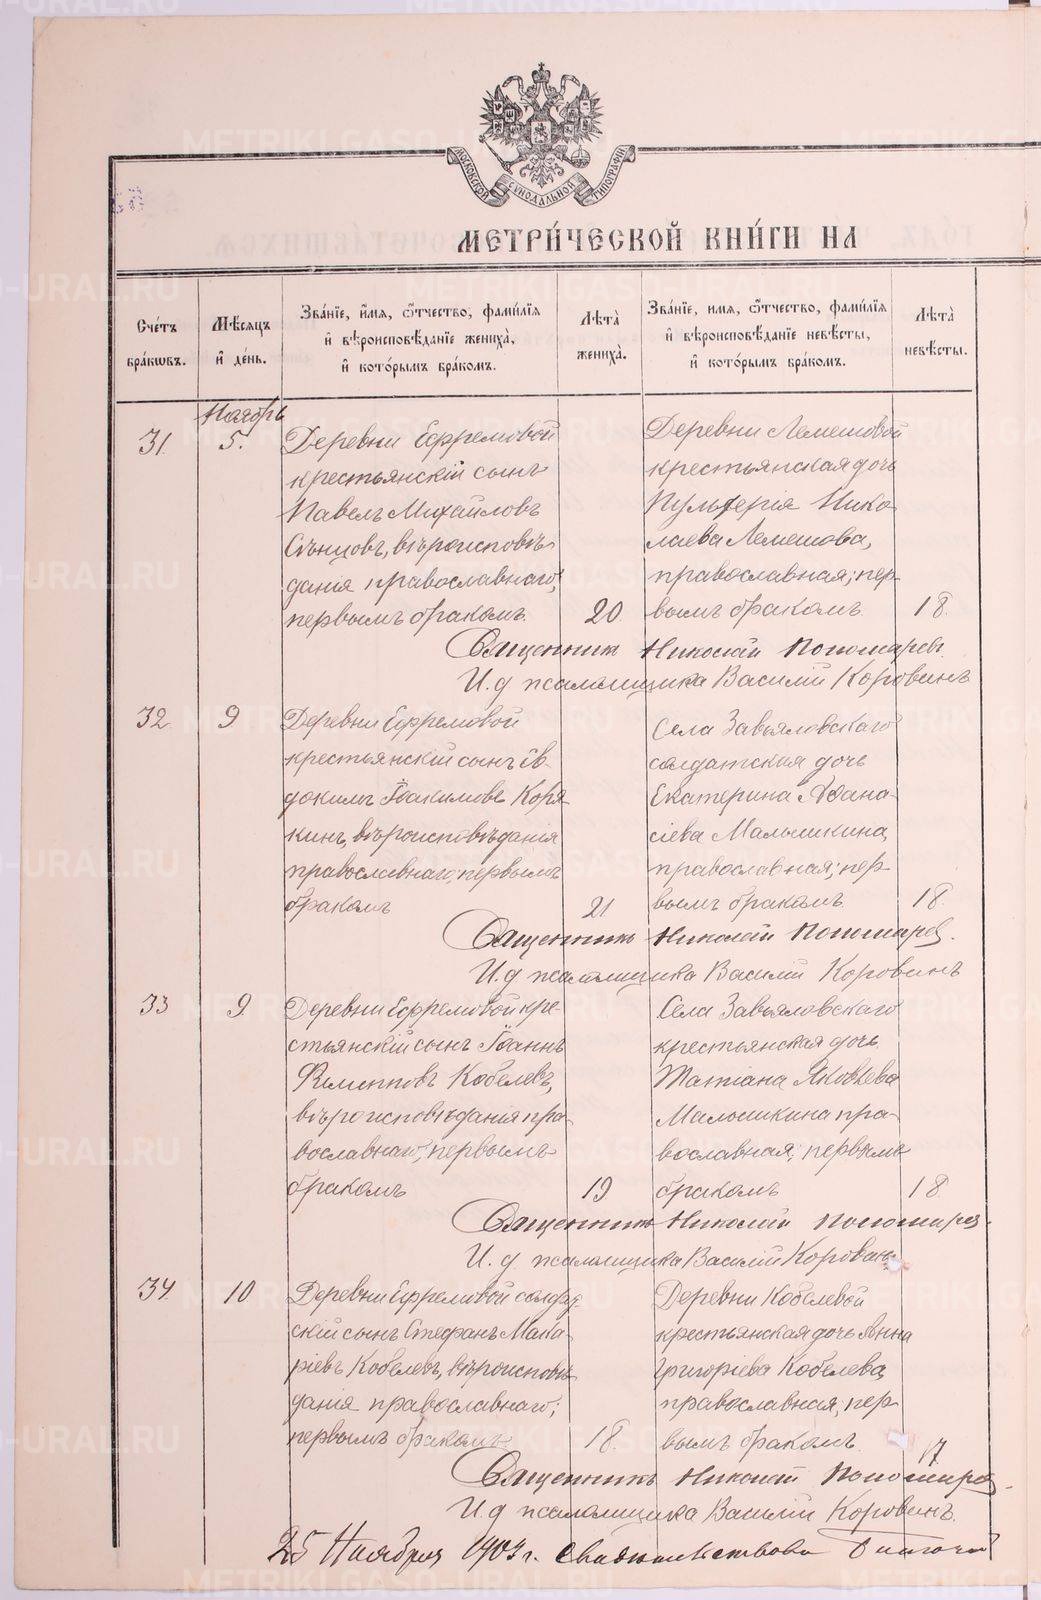 МОСКОВСКОЙ СѴНОДАЛЬНОЙ ТИПОГРАФІИ
МЕТРИ́ЧЕСКОЙ КНИ́ГИ НА
Сче́тъ бра́кωвъ.
Мѣ́сяцъ и҆ де́нь.
Зва́нїе, и҆́мѧ, ѻ҆́тчество, фами́лїѧ и҆ вѣроисповѣ́данїе жениха̀, и҆ кото́рымъ бра́комъ.
Лѣ́та̀ жениха̀.
Зва́нїе, и҆́мѧ, ѻ҆́тчество, фами́лїѧ и҆ вѣроисповѣ́данїе невѣ́сты, и҆ кото́рымъ бра́комъ.
Лѣ́та̀ невѣ́сты.
Ноябрь
31.
5.
Деревни Ефремовой
крестьянскій сынъ
Павелъ Михайловъ
Сѣнцовъ, вѣроисповѣ-
данія православнаго,
первымъ бракомъ.
20.
Деревни Лемешовой
крестьянская дочь
Пульхерія Нико-
лаева Лемешова,
православная; пер-
вымъ бракомъ.
18.
Священникъ Николай Пономаревъ.
И.д псаломщика Василій Коровинъ
32
9
Деревни Ефремовой
крестьянскій сынъ Ев-
докимъ Іоакимовъ Коря-
кинъ, вѣроисповѣданія
православнаго; первымъ
бракомъ
21
Села Завьяловскаго
солдатская дочь
Екатерина Аѳана-
сіева Малышкина,
православная; пер-
вымъ бракомъ.
18.
Священникъ Николай Пономарев.
И.д псаломщика Василій Коровинъ
33
9
Деревни Ефремовой кре-
стьянскій сынъ Іоаннъ
Филипповъ Кобелевъ,
вѣроисповѣданія пра-
вославнаго; первымъ
бракомъ
19
Села Завьяловскаго
крестьянская дочь
Татіана Яковлева
Малышкина пра-
вославная; первымъ
бракомъ
18
Священникъ Николай Пономарев.
И. д псаломщика Василій Коровинъ
34
10
Деревни Ефремовой солдат-
скій сынъ Стефанъ Мака-
ріевъ Кобелевъ, вѣроисповѣ-
данія православнаго;
первымъ бракомъ
18.
Деревни Кобелевой
крестьянская дочь Анна
Григоріева Кобелева,
православная, пер-
вымъ бракомъ.
17
Священникъ Николай Пономарев.
И.д псаломщика Василій Коровинъ.
25 Ноября г. Свидѣтельствовалъ Благочин
METRIKI.GASO-URAL.RU